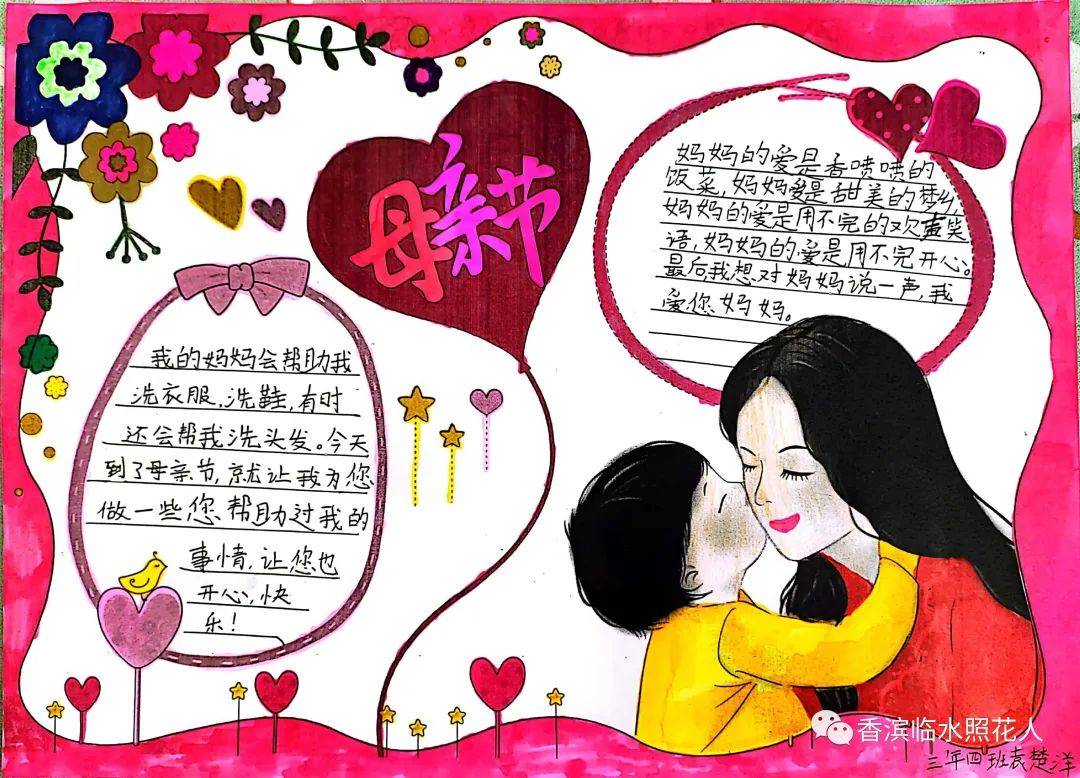 母亲节
妈妈的爱是香喷喷的
饭菜,妈妈爱是甜美的梦乡,
妈妈的爱是用不完的欢声笑
语,妈妈的爱是用不完开心。
最后我想对妈妈说一声,我
爱你妈妈。
我的妈妈会帮助我
洗衣服,洗鞋,有时
还会帮我洗头发。今天
到了母亲节,就让我为您
做一些您帮助过我的
事情,让您也
开心,快
乐!
香滨临水照花人
三年四班袁楚洋